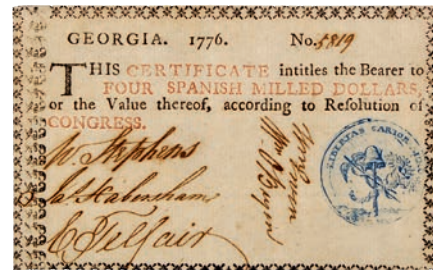 GEORGIA. 1776. No. 5819
THIS CERTIFICATE intitles the Bearer to
FOUR SPANISH MILLED DOLLARS,
or the Value thereof, according to Resolution of
CONGRESS.
W. Stephens
Js. Habersham
E Telfair
LIBERTAS CARIOR AURO